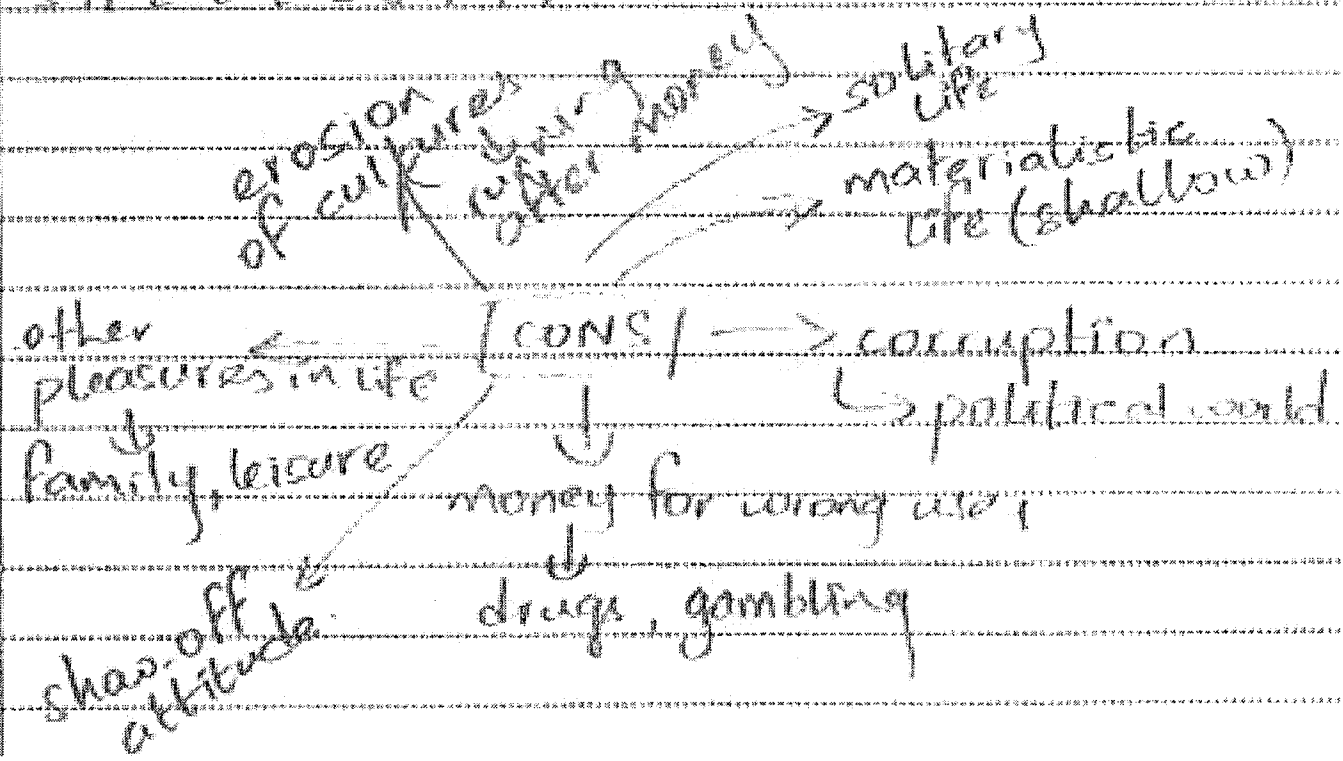 erosion
of cultures
running
after money
solitary
life
materialistic
life (shallow)
other
pleasures in life
family, leisure
CONS
corruption
political world
money for wrong use,
drugs, gambling
show-off
attitude